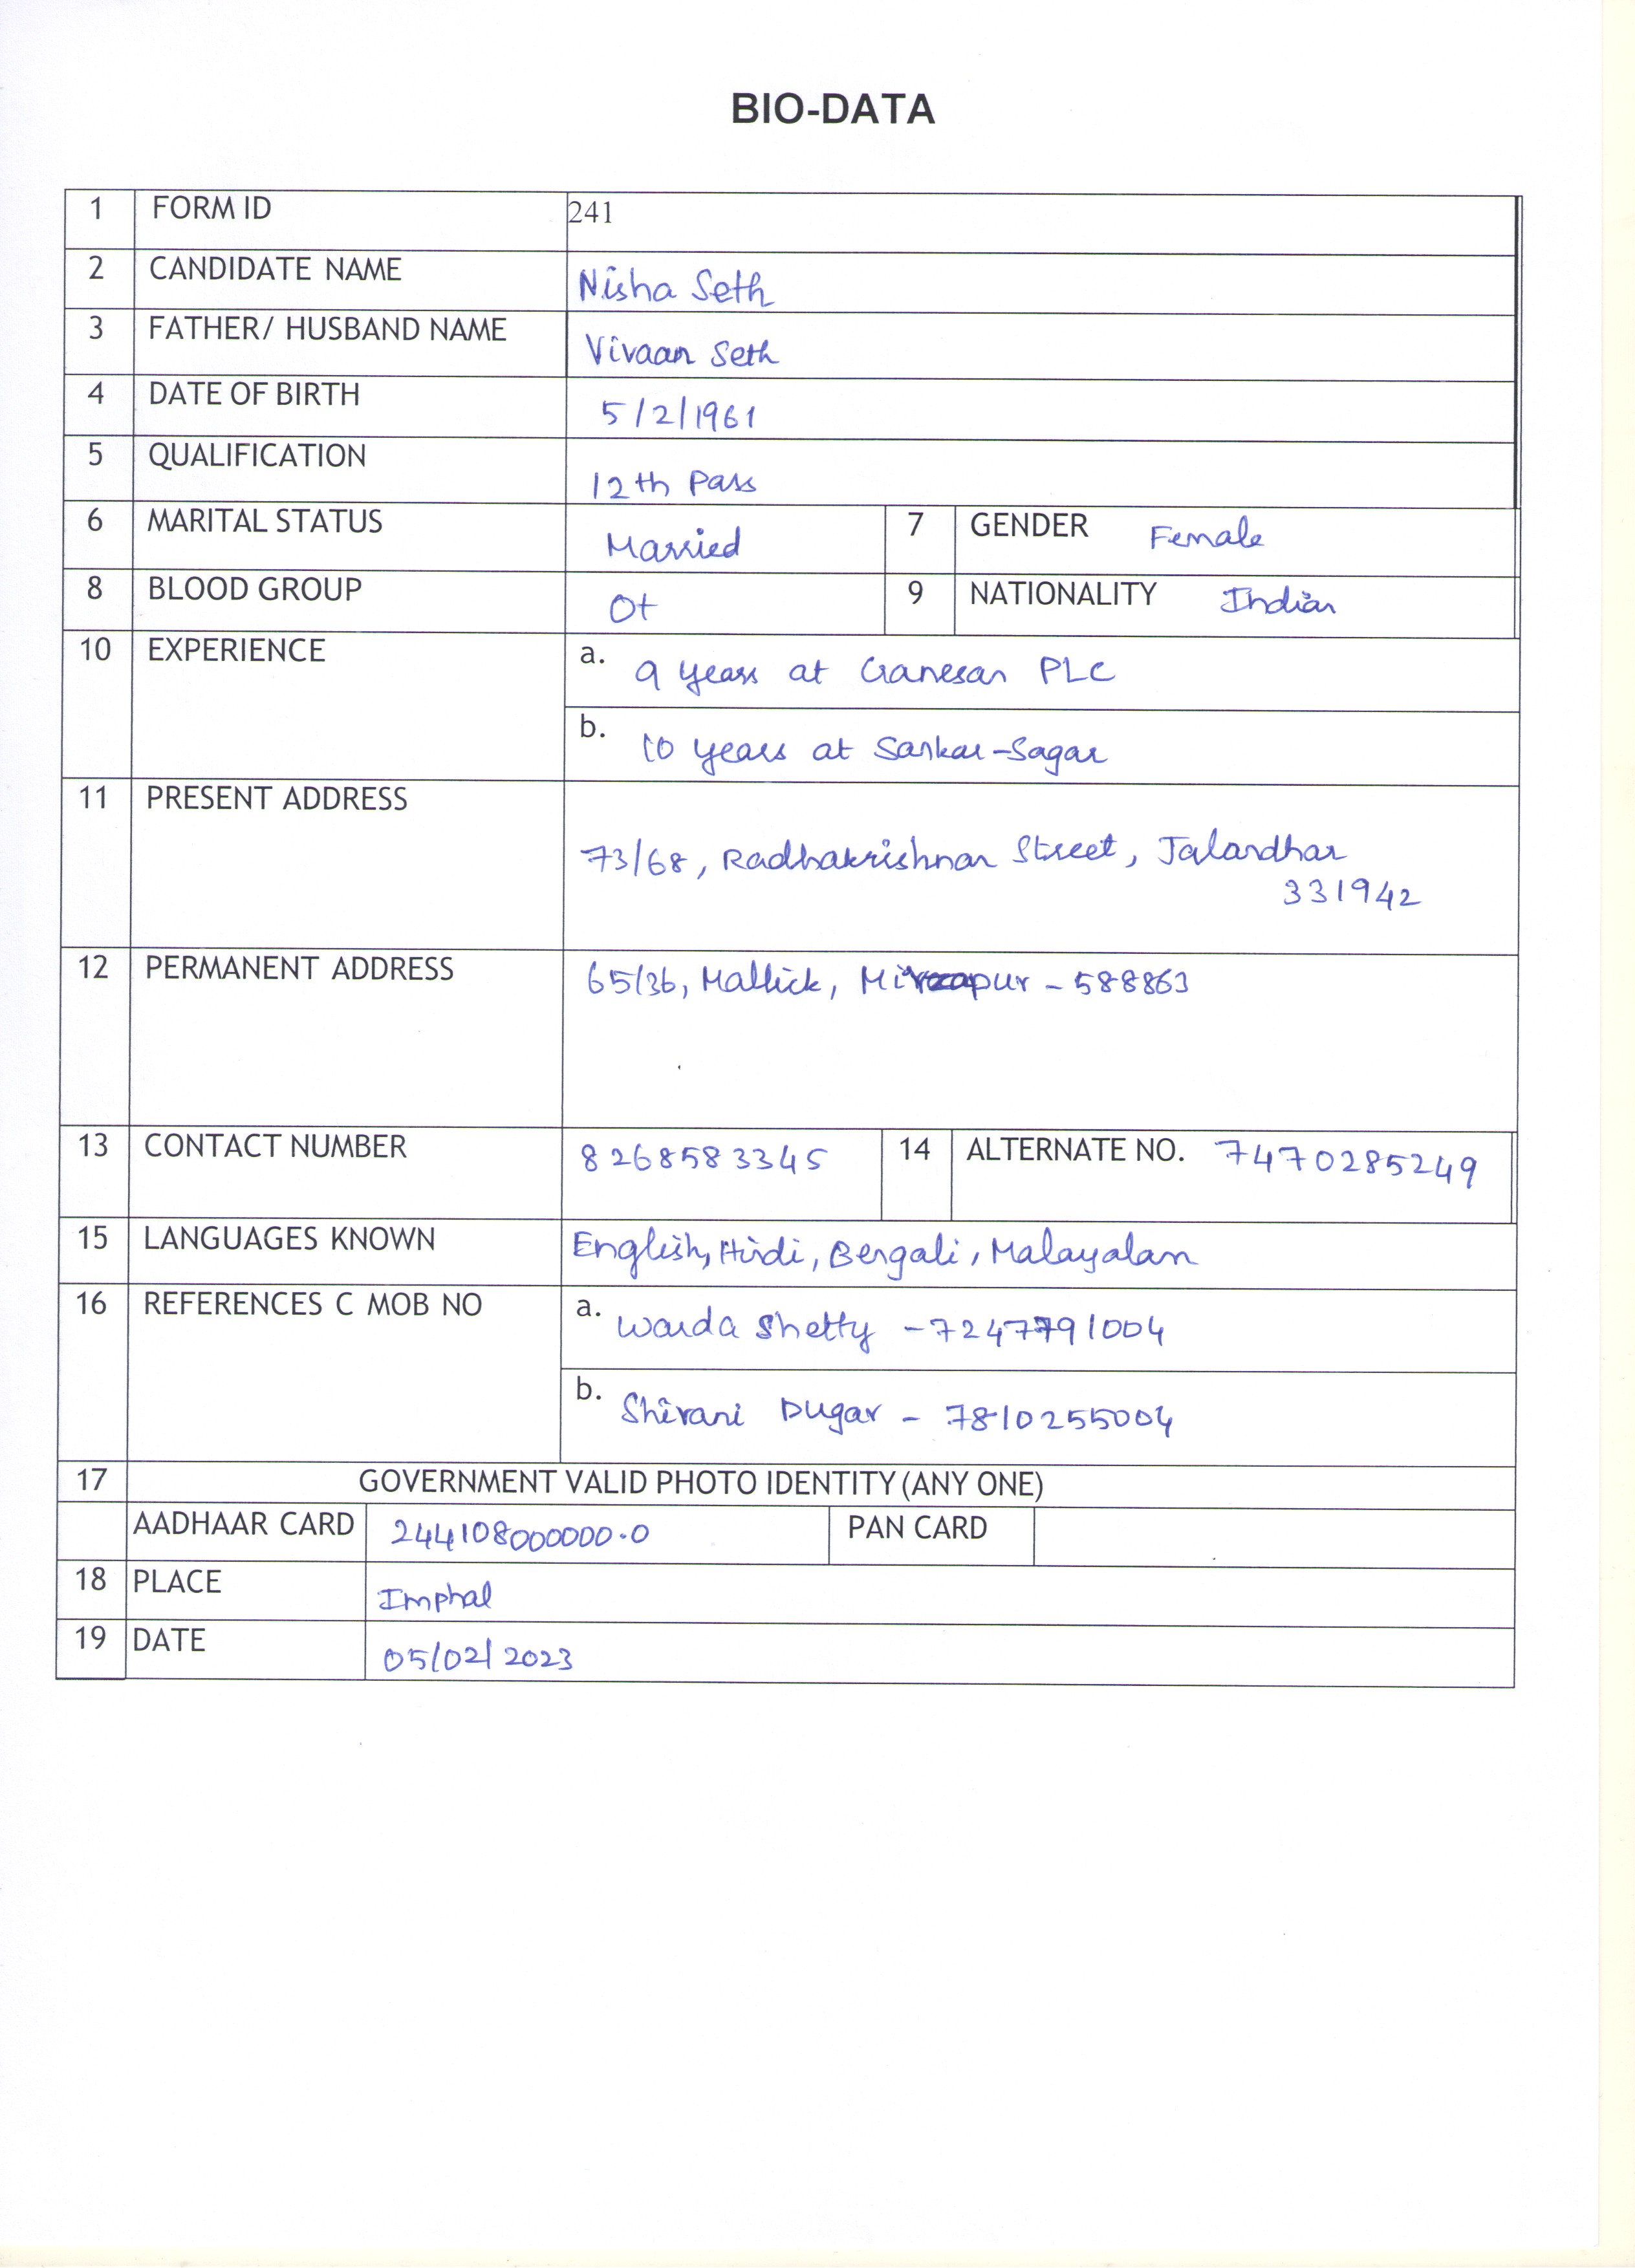 BIO-DATA
1 FORM ID 241
2 CANDIDATE NAME Nisha Seth
3 FATHER/ HUSBAND NAME Vivaan Seth
4 DATE OF BIRTH 5/2/1961
5 QUALIFICATION 12th Pass
6 MARITAL STATUS Married 7 GENDER Female
8 BLOOD GROUP O+ 9 NATIONALITY Indian
10 EXPERIENCE a. 9 years at Ganesan PLC
b. 10 years at Sarkar-Sagar
11 PRESENT ADDRESS
73/68, Radhakrishnan Street, Jalandhar
331942
12 PERMANENT ADDRESS 65/36, Mallick, Mirzapur - 588863
13 CONTACT NUMBER 8268583345 14 ALTERNATE NO. 7470285249
15 LANGUAGES KNOWN English, Hindi, Bengali, Malayalam
16 REFERENCES C MOB NO a. Warda Shetty - 7247791004
b. Shivani Dugar - 7810255004
17 GOVERNMENT VALID PHOTO IDENTITY (ANY ONE)
AADHAAR CARD 244108000000.0 PAN CARD
18 PLACE Imphal
19 DATE 05/02/2023